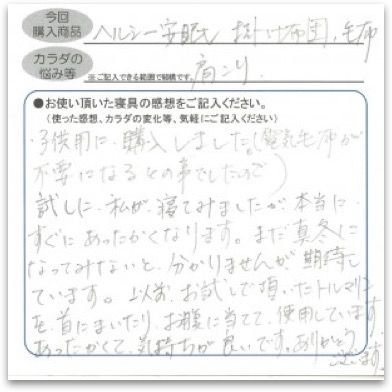 今回
購入商品
ヘルシー安眠 掛け布団、毛布
カラダの
悩み等
※ご記入できる範囲で結構です。
肩こり
●お使い頂いた寝具の感想をご記入ください。
(使った感想、カラダの変化等、気軽にご記入ください)
子供用に、購入しました。(電気毛布が
不要になるとの事でしたので)
試しに、私が、寝てみましたが、本当に、
すぐにあったかくなります。まだ真冬に
なってみないと、分かりませんが、期待し
ています。以前、お試しで頂いたトルマリン
を、首にまいたり、お腹に当てて、使用しています。
あったかくて、気持ちが良いです。ありがとう
ございます。